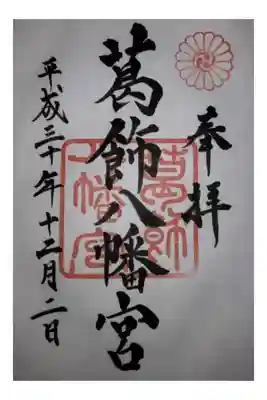 奉拝
葛飾八幡宮
平成三十年十二月二日
葛飾
八幡宮